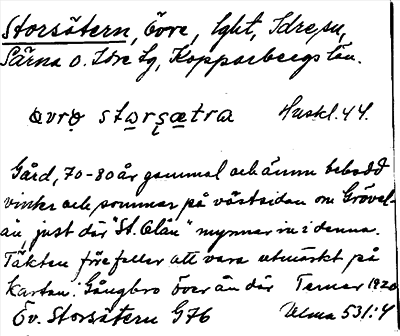 Storsätern, Övre, lght, Idre sn,
Särna o. Idre tg, Kopparbergs län.
øvrə stɷrsætra Huskl. 44.
Gård, 70-80 år gammal och ännu bebodd
vinter och sommar på västsidan om Grövel-
ån, just där "St. Olån" mynnar in i denna.
Täkten förefaller att vara utmärkt på
kartan. Gångbro över ån där Terner 1920
Öv. Storsätern G76 Uelma 531:4